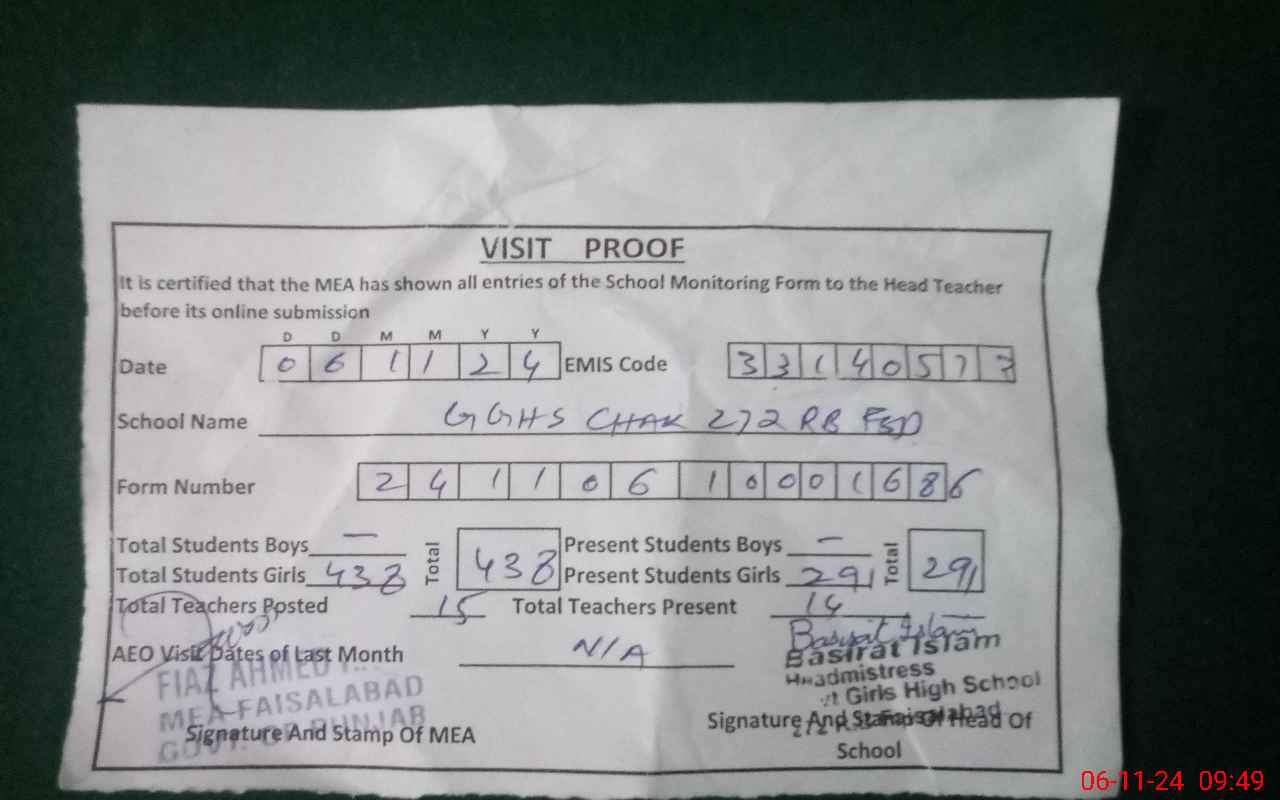 VISIT PROOF
It is certified that the MEA has shown all entries of the School Monitoring Form to the Head Teacher
before its online submission
D D M M Y Y
Date 0 6 1 1 2 4 EMIS Code 3 3 1 4 0 5 7 3
School Name GGHS CHAK 272 RB FSD
Form Number 2 4 1 1 0 6 1 0 0 0 1 6 8 6
Total Students Boys — Total 438 Present Students Boys — Total 291
Total Students Girls 438 Present Students Girls 291
Total Teachers Posted 15 Total Teachers Present 14
AEO Visit Dates of Last Month N/A
Basirat Islam
Basirat Islam
Headmistress
Girls High School
Faisalabad
FIAZ AHMED
MEA-FAISALABAD
GOVT. OF PUNJAB
Signature And Stamp Of MEA
Signature And Stamp Of Head Of
School
06-11-24 09:49